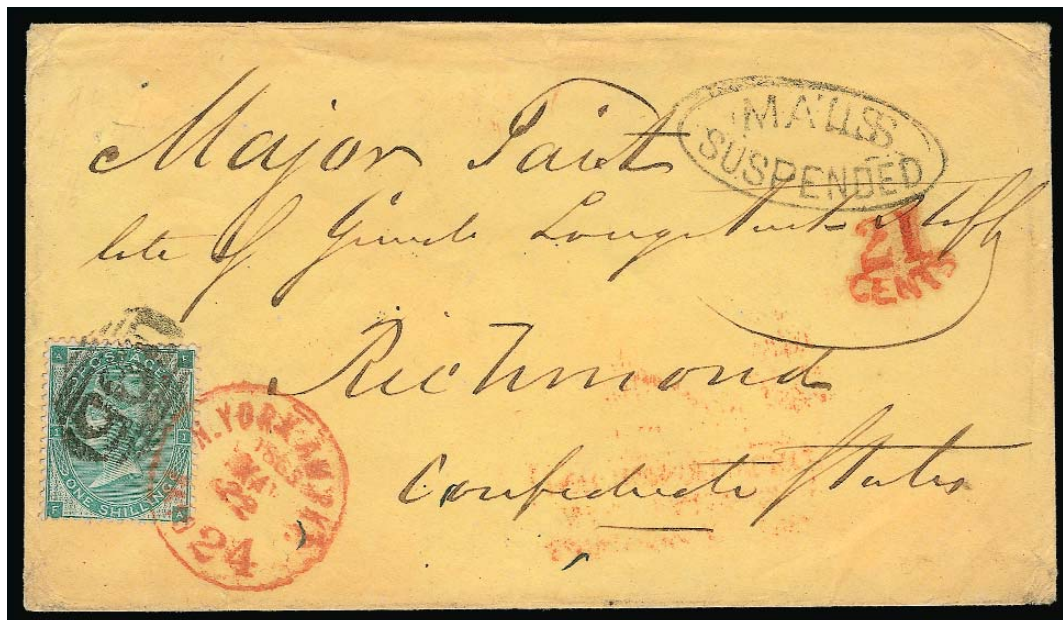 MAILS
SUSPENDED
Major Tait
late of Genl Longstreet's Staff
21
CENTS
Richmond
Confederate States
POSTAGE
ONE SHILLING
N. YORK AM. PKT.
MAY
24